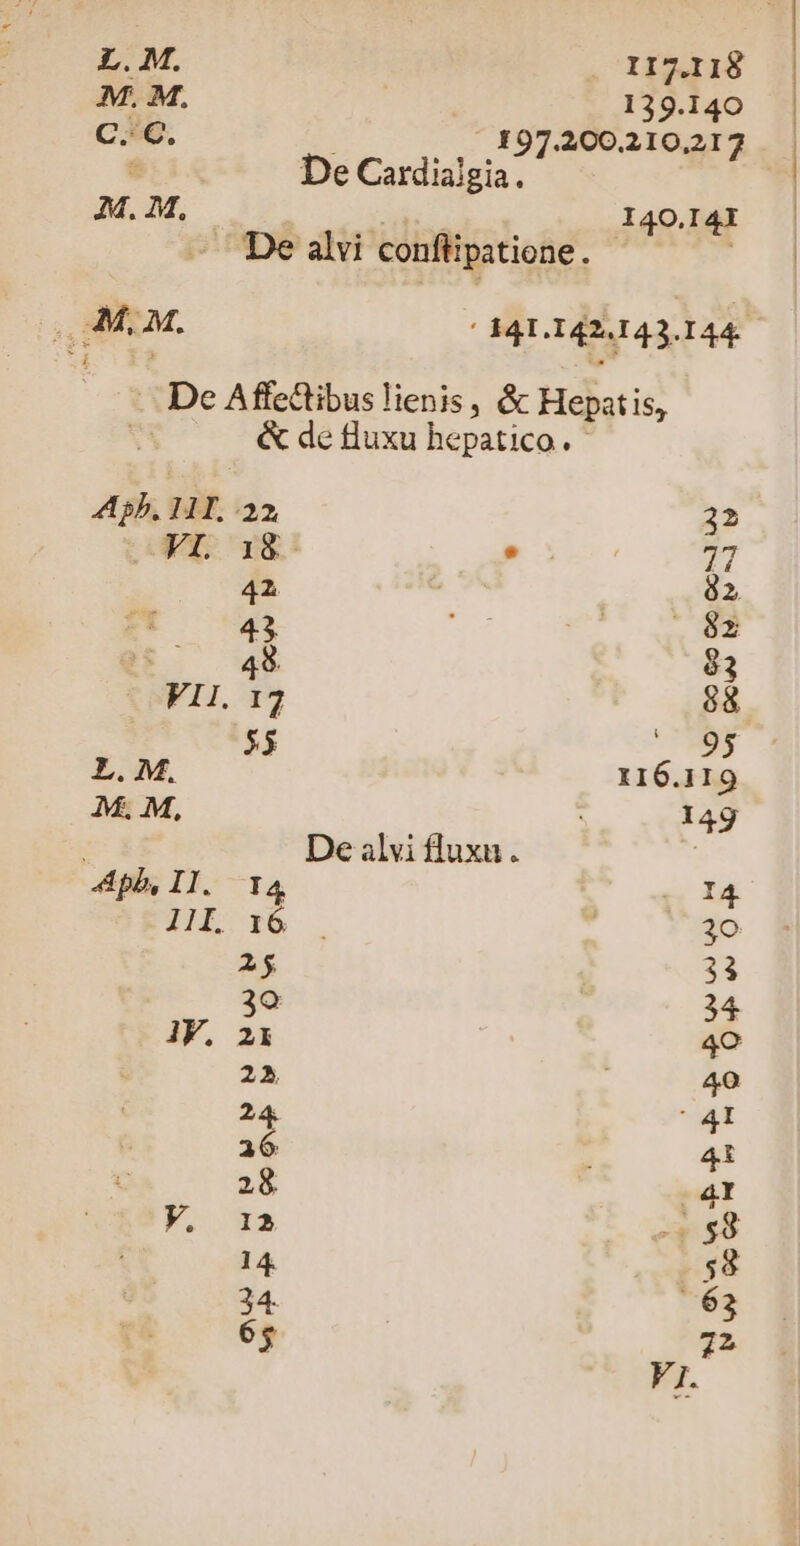 L. M. 117.118
M. M. 139.140
C. C. 197.200.210.217
De Cardialgia.
M. M. 140.141
De alvi conſtipatione.
M. M. 141.142.143.144
De Affectibus lienis, & Hepatis,
& de fluxu hepatico.
Aph. III. 22 32
VI. 18 77
42 82
43 82
48 83
VII. 17 88
55 95
L. M. 116.119
M. M. 149
De alvi fluxu.
Aph. II. 14 14
III. 16 30
25 33
30 34
IV. 21 40
22 40
24 41
26 41
28 41
V. 12 58
14 58
34 63
65 72
VI.